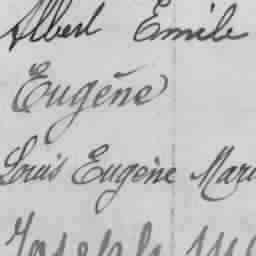 Albert Emile
Eugène
Louis Eugène Mari
Joseph